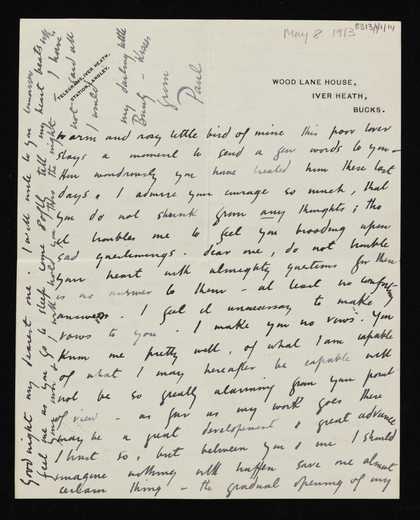 May 8 1913
WOOD LANE HOUSE,
IVER HEATH,
BUCKS.
TELEGRAMS, IVER HEATH.
STATION, LANGLEY.
Warm and rosy little bird of mine this poor lover
stays a moment to send a few words to you —
How wondrously you have healed him these last
days. I admire your courage so much, that
you do not shrink from any thoughts; tho
it troubles me to feel you brooding upon
sad questionings. Dear one, do not trouble
your heart with almighty questions for there
is no answer to them — at least no
answers. I feel it unnecessary to make
vows to you. I make you no vows. You
know me pretty well, of what I am capable
of what I may hereafter be capable will
not be so greatly alarming from your point
of view — as far as my work goes there
may be a great development & great advance
I trust so, but between you & me I should
imagine nothing will happen save one almost
certain thing — the gradual opening of my
Good night my dearest one. I will write to you tomorrow
feel me as you go to sleep come softly
tell my heart beats
I will hold you thro the night — I have
not said all
I would
my darling little
Bunty — kisses
from
Paul